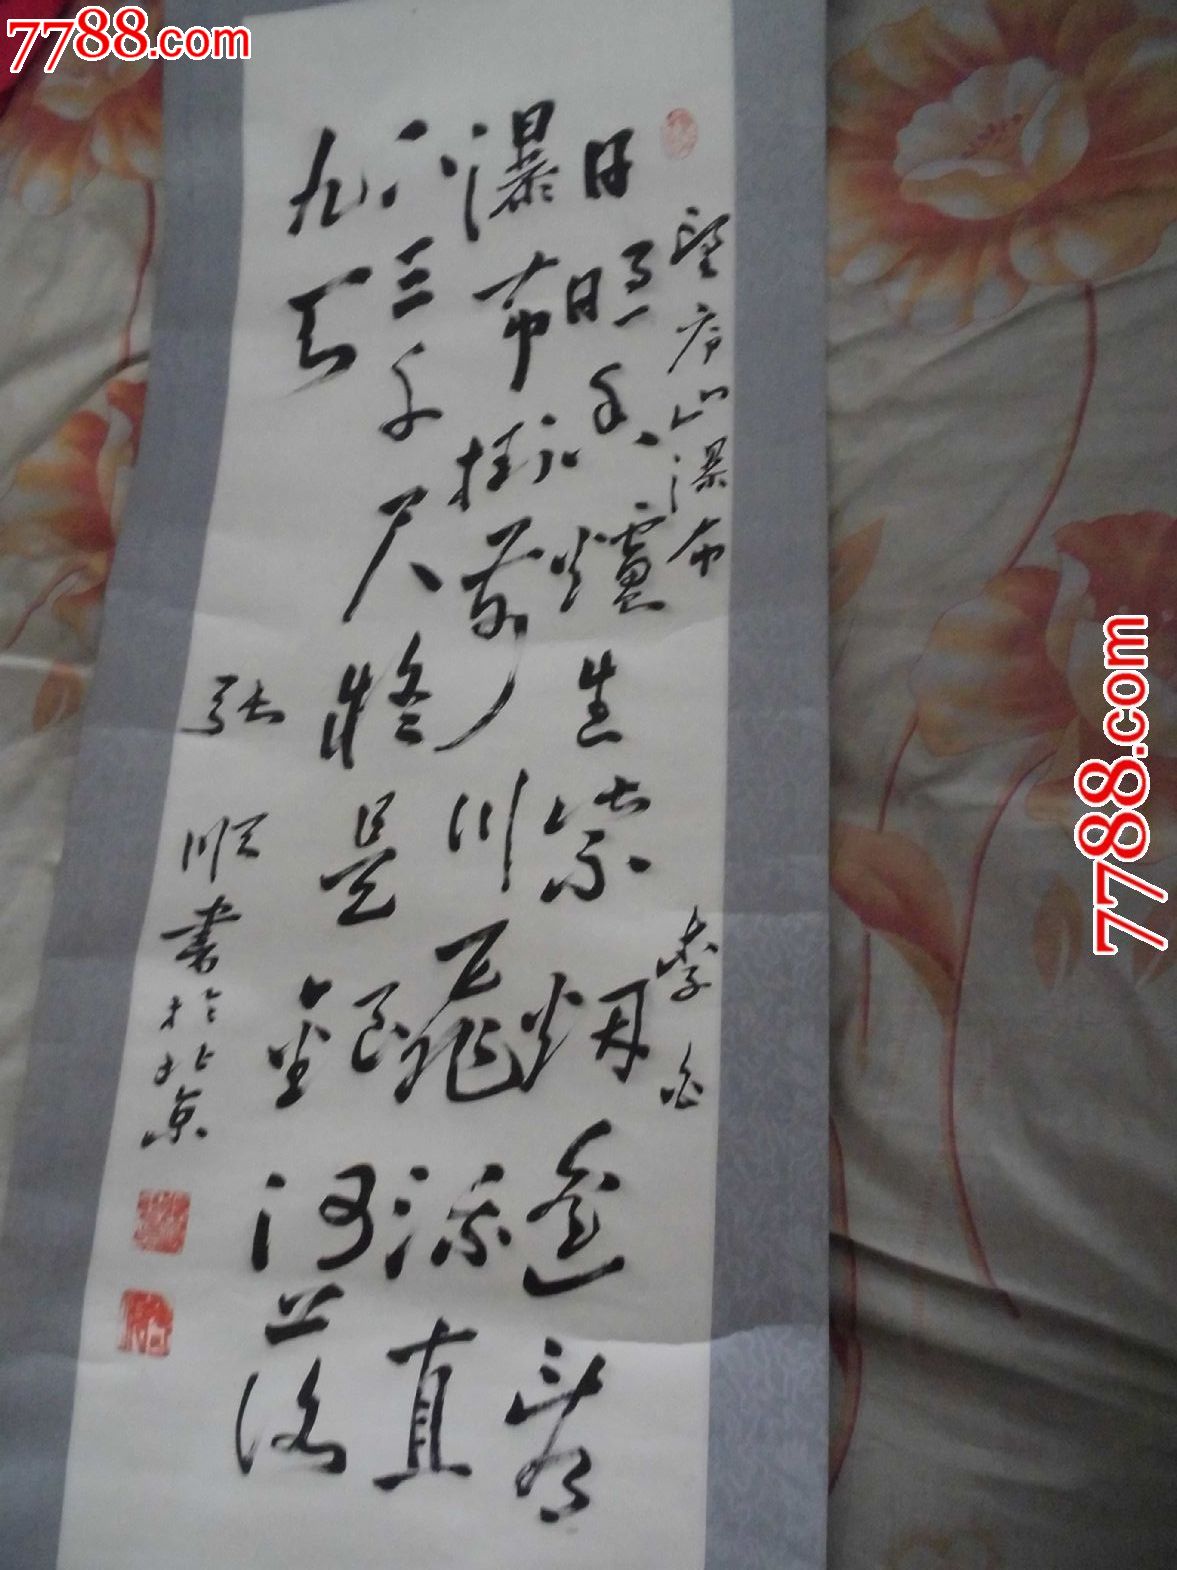 7788.com
望庐山瀑布 李白
日照香爐生紫烟遥看
瀑布掛前川飛流直
下三千尺将是銀河落
九天
张顺書於北京
7788.com